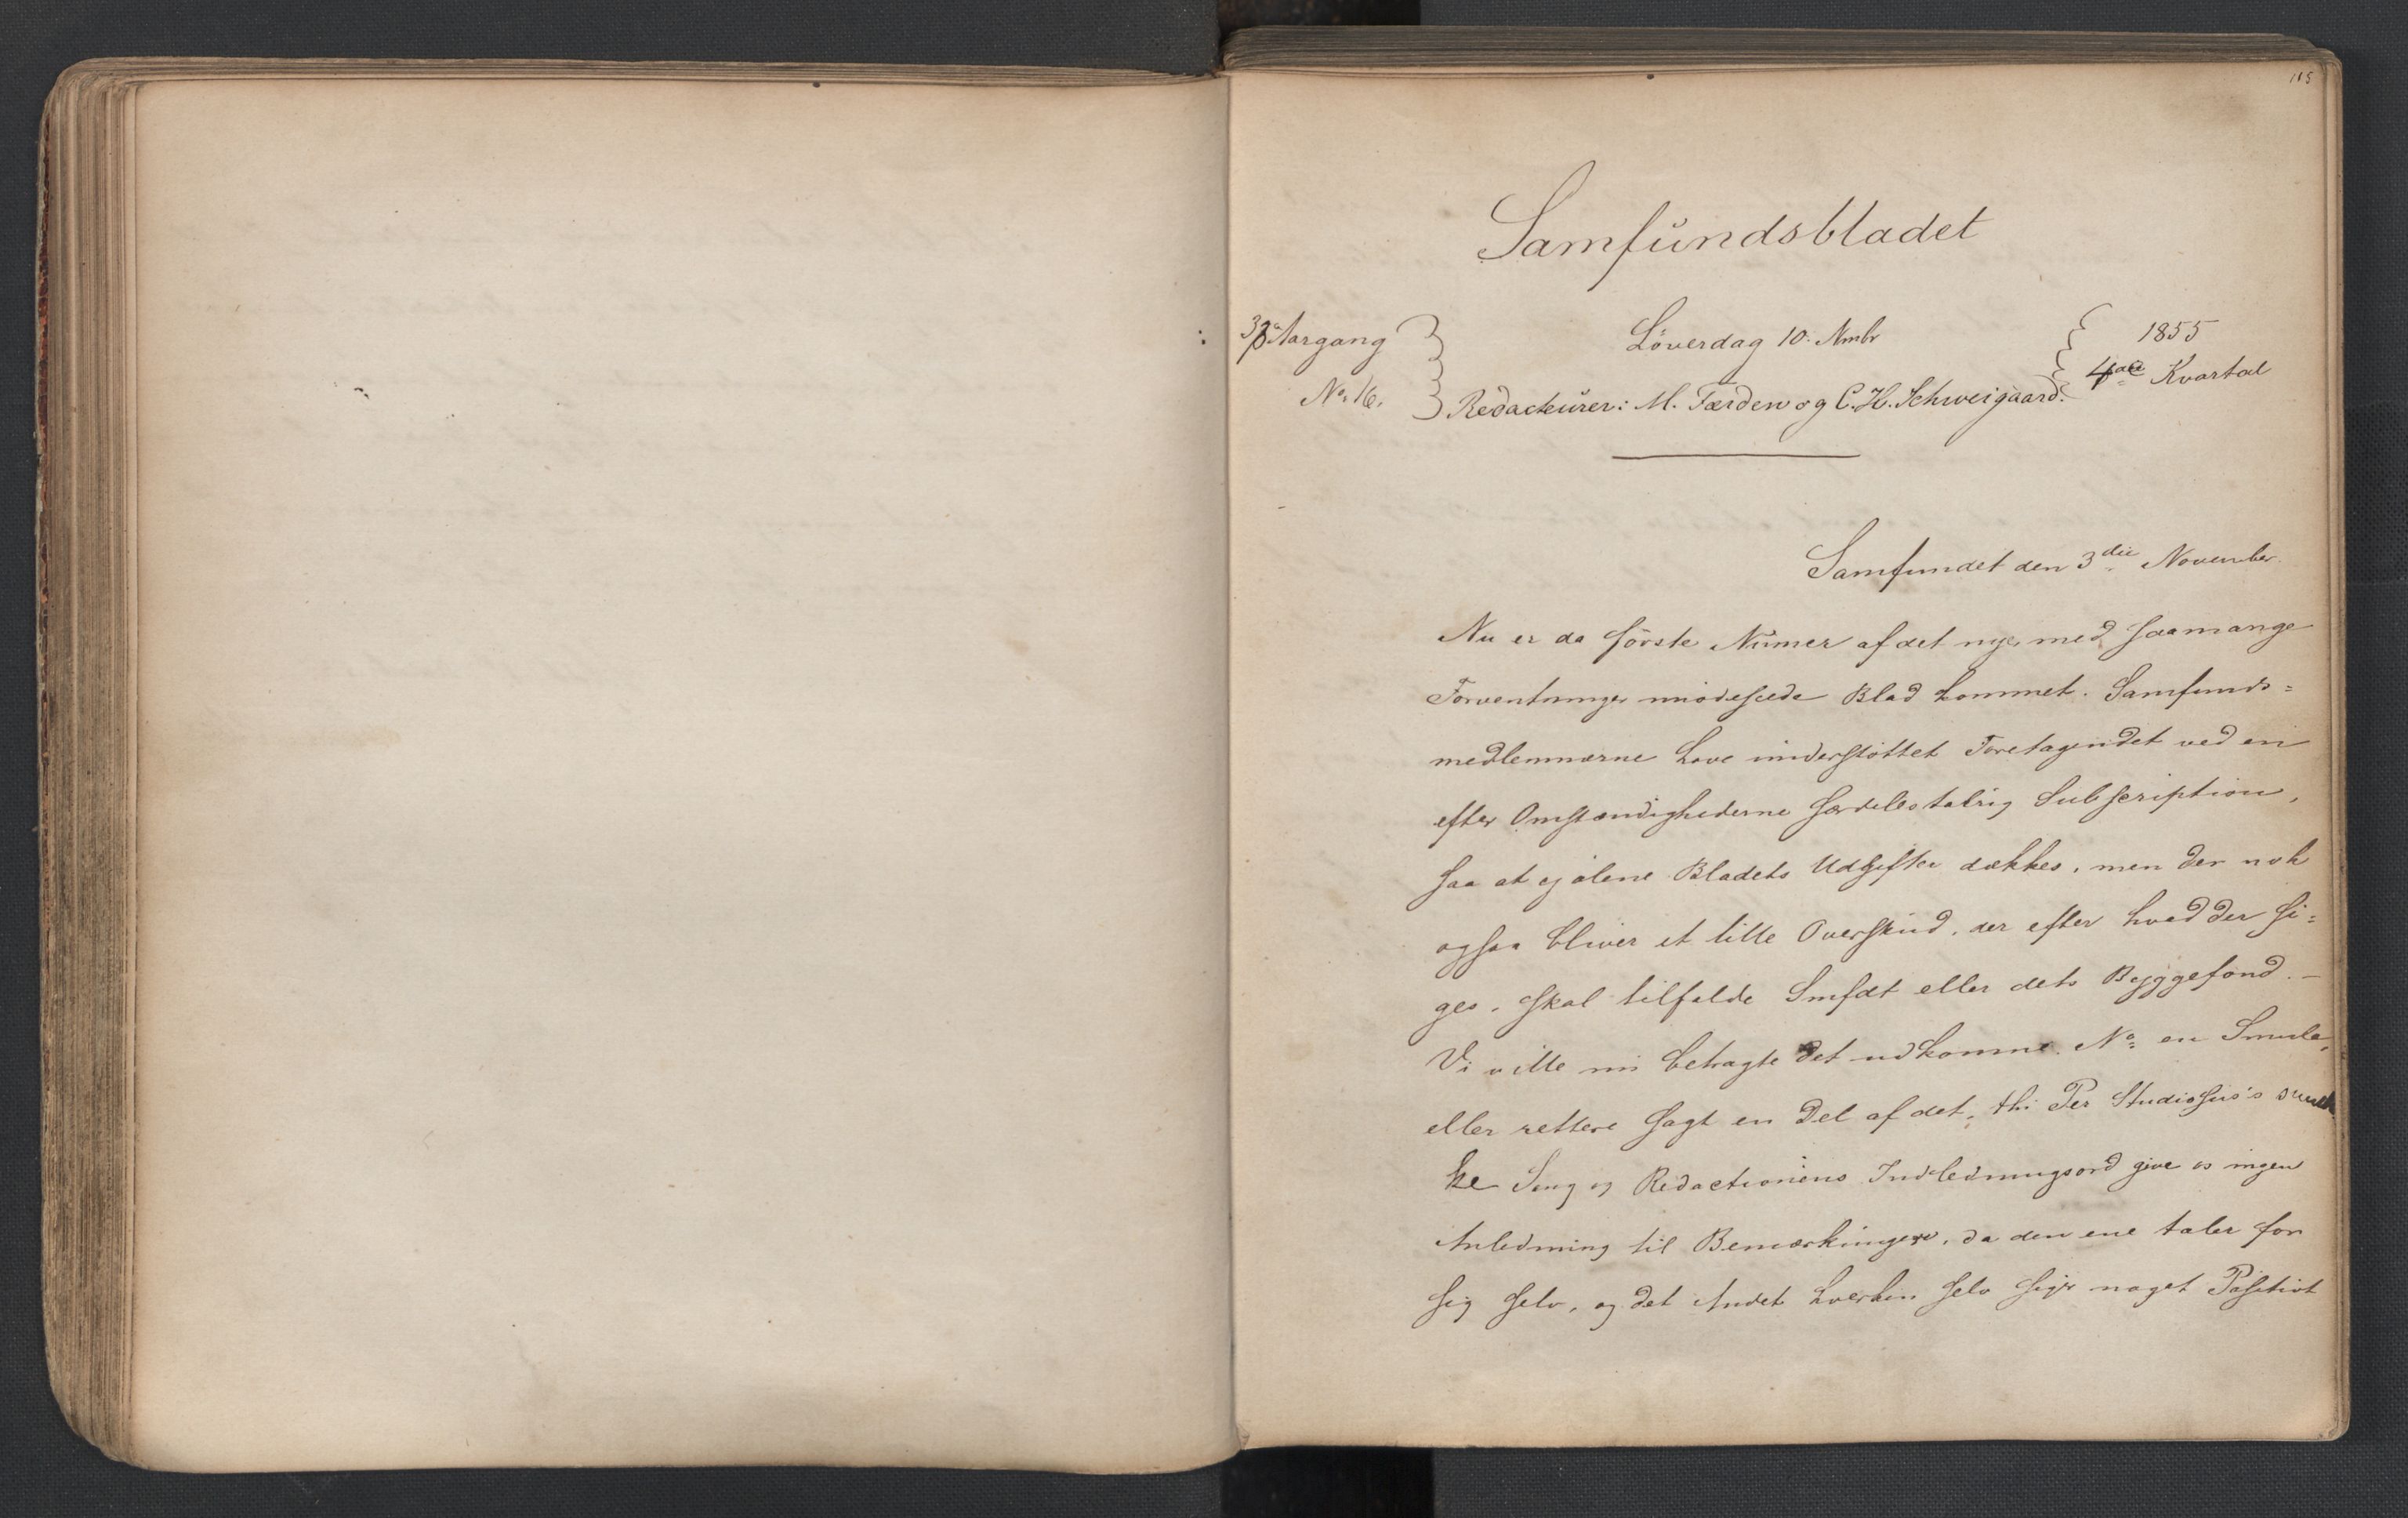 115
Samfundsbladet
37te Aargang
Löverdag 10. Nmbr
1855
No. 16.
Redacteurer: M. Færden og C. H. Schweigaard.
4de Kvartal
Samfundet den 3die November.
Nu er da første Numer af det nye, med saamange
Forventninger mødeseede Blad kommet. Samfunds=
medlemmerne have understøttet Foretagendet ved en
efter Omstændighederne særdeles talrig Subscription,
saa at ej alene Bladets Udgifter dækkes, men der nok
ogsaa bliver et lille Overskud, der efter hvad der si=
ges, skal tilfalde Smfdt eller dets Byggefond. –
Vi ville nu betragte det udkomne No. en Smule,
eller rettere sagt en Del af det, thi Per Studiosus's smuk
ke Sang og Redactionens Indledningsord give os ingen
Anledning til Bemærkninger, da den ene taler for
sig selv, og det Andet hverken selv siger noget Positivt